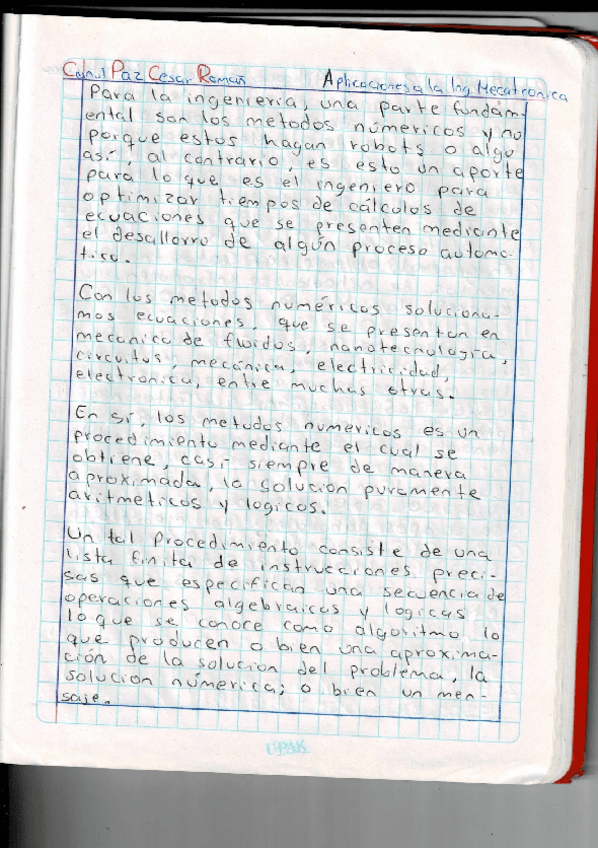 Canul Paz Cesar Román Aplicaciones a la Ing. Mecatronica
Para la ingenieria, una parte fundam-
ental son los metodos númericos y no
porque estos hagan robots o algo
así, al contrario, es esto un aporte
para lo que es el ingeniero para
optimizar tiempos de cálculos de
ecuaciones que se presenten mediante
el desallorro de algún proceso automa-
tico.
Con los metodos numéricos soluciona-
mos ecuaciones, que se presentan en
mecanica de fluidos, nanotecnología,
circuitos, mecánica, electricidad,
electronica, entre muchas otras.
En sí, los metodos numericos es un
procedimiento mediante el cual se
obtiene, casi siempre de manera
aproximada, la solucion puramente
aritmeticos y logicos.
Un tal procedimiento consiste de una
lista finita de instrucciones preci-
sas que especifican una secuencia de
operaciones algebraicas y logicas
lo que se conoce como algoritmo lo
que producen o bien una aproxima-
ción de la solucion del problema, la
solucion númerica; o bien un men-
saje.